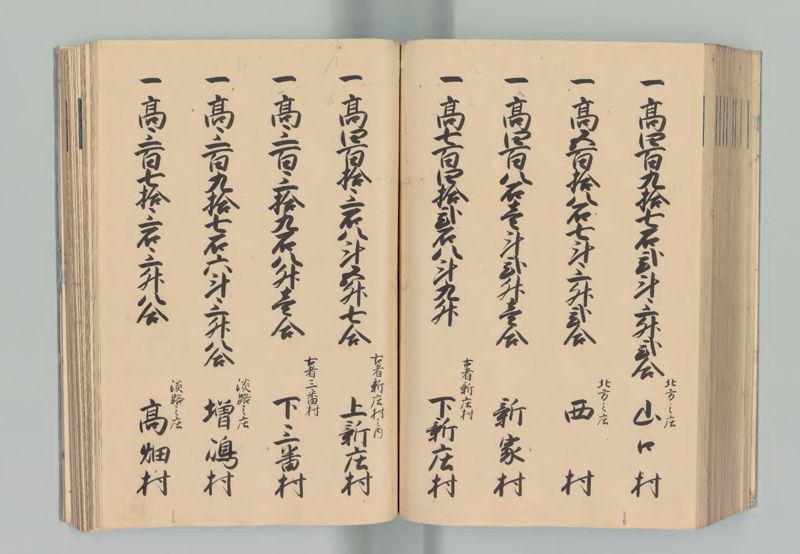 一高四百九拾七石弐斗三升弐合
北方之庄
山口村
一高五百拾八石七斗三升弐合
北方之庄
西村
一高四百八石壱斗弐升壱合
新家村
一高七百四拾弐石八斗九升
古者新庄村
下新庄村
一高四百拾三石八斗五升七合
古者新庄村之内
上新庄村
一高三百三拾九石八升壱合
古者三番村
下三番村
一高三百九拾七石六斗三升八合
淡路之庄
増嶋村
一高三百七拾三石三升八合
淡路之庄
高畑村